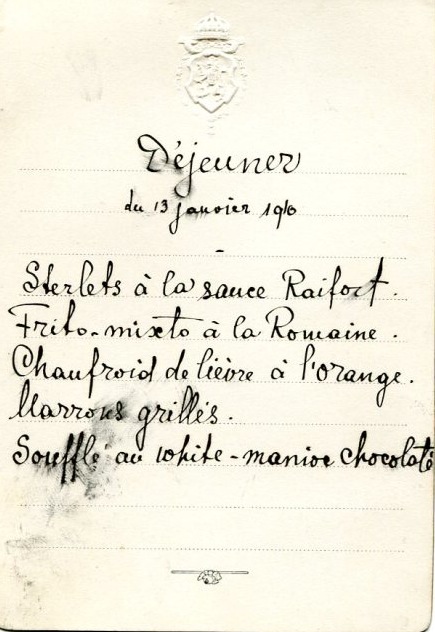 Déjeuner
du 13 janvier 1910
Sterlets à la sauce Raifort.
Frito-mixto à la Romaine.
Chaufroid de lièvre à l'orange.
Marrons grillés.
Soufflé au white-manioc chocolaté